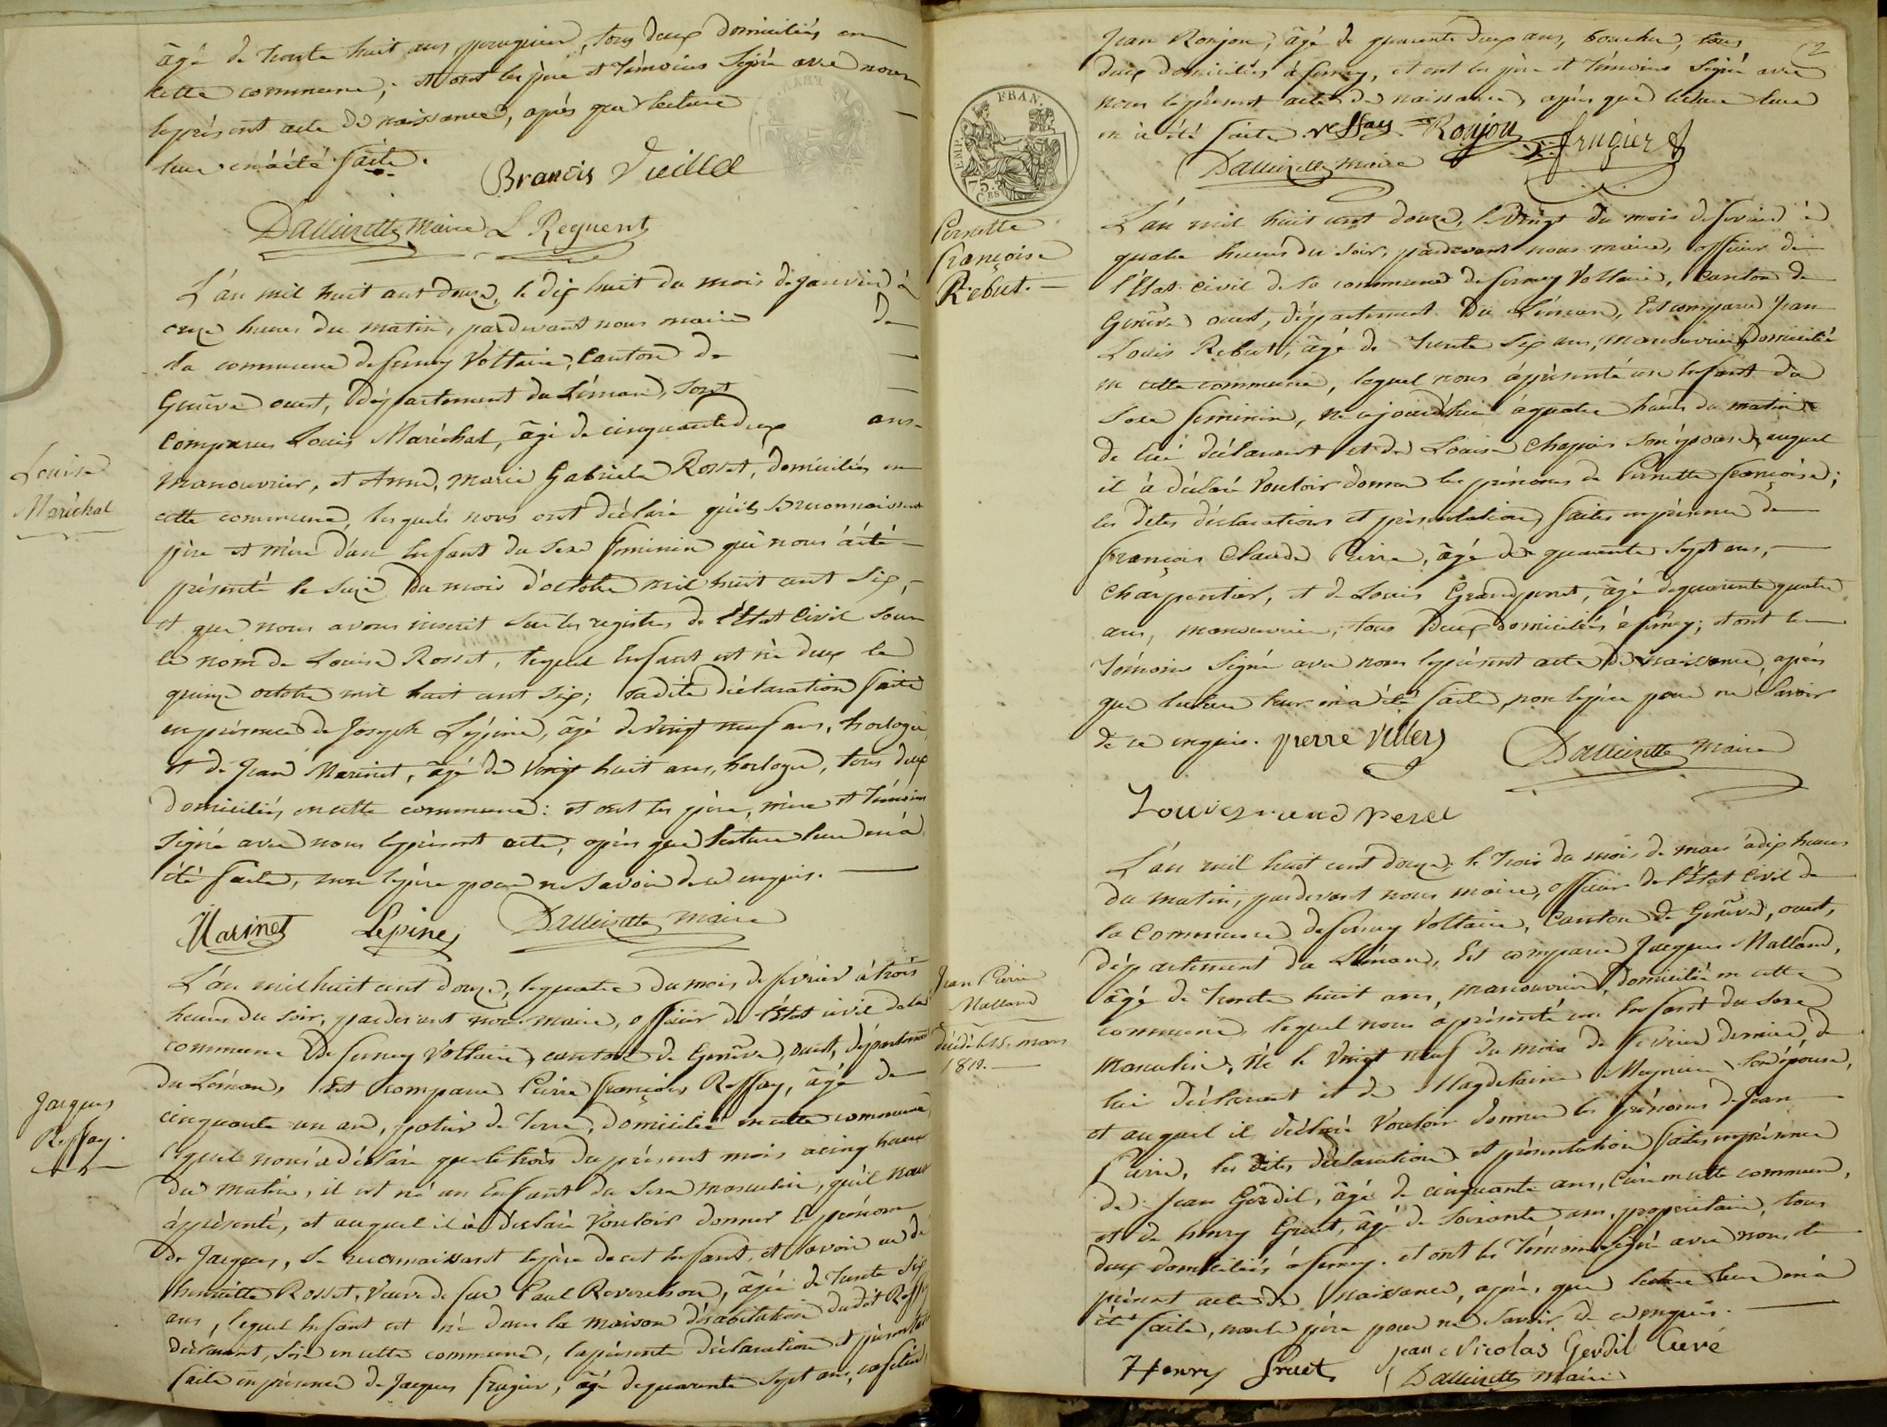 âgé de trente huit ans, perruquier, tous deux domiciliés en
cette commune; et ont les père et témoins signé avec nous
le présent acte de naissance, après que lecture
leur en à été faite.
Brancis Vieille
Dallizette maire L Requent
L'an mil huit cent douze, le dix huit du mois de janvier à
onze heures du matin, pardevant nous maire de
la commune de ferney Voltaire, Canton de
Genève ouest, département du Léman, sont
comparus Louis Maréchal, âgé de cinquante deux ans
manouvrier, et Anne, Marie Gabriele Rosset, domiciliés en
cette commune, lesquels nous ont déclaré qu'ils se reconnaissent
père et mère d'un Enfant du sexe feminin qui nous à été
présenté le seize du mois d'octobre mil huit cent six,
et que nous avons inscrit sur les registres de l'Etat Civil sous
le nom de Louise Rosset, lequel Enfant est né d'eux le
quinze octobre mil huit cent six; ladite déclaration faite
en présence de Joseph Lépine, âgé de vingt neuf ans, horloger
et de Jean Marinet, âgé de vingt huit ans, horloger, tous deux
domiciliés en cette commune: et ont les père, mère et témoins
signé avec nous le présent acte, après que lecture leur en à
été faite, non le père pour ne savoir de ce enquis.
Marinet Lepine Dallizette maire
Louise
Maréchal
L'an mil huit cent douze, le quatre du mois de février à trois
heures du soir, pardevant nous maire, officier de l'Etat civil de la
commune de ferney Voltaire, canton de Genève, ouest, département
du Léman, Est comparu Pierre françois Reffay, âgé de
cinquante un an, potier de Terre, domicilié en cette commune
lequel nous a déclaré que le trois du présent mois a cinq heures
du matin, il est né un Enfant du sexe masculin, qu'il nous
à présenté, et auquel il à déclaré vouloir donner le prénom
de Jacques, se reconnaissant le père de cet Enfant, et l'avoir eu de
henriette Rosset, Veuve de feu Paul Reverchon, âgée de trente six
ans, lequel Enfant est né dans la maison d'habitation dudit Reffay
déclarant, sise en cette commune, la présente déclaration et présentation
faite en présence de Jacques frugier, âgé de quarante sept ans, cafetier,
Jacques
Reffay.
Jean Ronjon, âgé de quarante deux ans, boucher, tous
deux domiciliés à ferney, et ont les père et témoins signé avec
nous le présent acte de naissance, après que lecture leur
en à été faite. reffay Ronjon J. frugier
Dallizette maire
FRAN.
EMP.
75.
Pernette
françoise
Rebut.
L'an mil huit cent douze, le vingt du mois de fevrier à
quatre heures du soir, pardevant nous maire, officier de
l'Etat civil de la commune de ferney Voltaire, canton de
Genève ouest, département du Léman, Est comparu Jean
Louis Rebut, âgé de trente six ans, manouvrier, domicilié
en cette commune, lequel nous à présenté un Enfant du
sexe feminin, né aujourd'hui à quatre heures du matin
de lui déclarant et de Louise Chapuis son épouse, auquel
il à déclaré vouloir donner les prénoms de Pernette françoise;
les dites déclarations et présentation faites en présence de
françois Claude Pierre, âgé de quarante sept ans,
charpentier, et de Louis Grandperret, âgé de quarante quatre
ans, manouvrier, tous deux domiciliés à ferney; et ont les
témoins signé avec nous le présent acte de naissance, après
que lecture leur en à été faite, non le père pour ne savoir
de ce enquis. pierre Dallizette maire
Jean Pierre
Malland
décédé le 15 mars
L'an mil huit cent douze, le trois du mois de mars à dix heures
du matin, pardevant nous maire, officier de l'Etat Civil de
la Commune de ferney Voltaire, Canton de Genève, ouest,
département du Léman, Est comparu Jacques Malland,
âgé de trente huit ans, manouvrier, domicilié en cette
commune lequel nous à présenté un Enfant du sexe
masculin, né le vingt neuf du mois de fevrier dernier, de
lui déclarant et de Magdelaine Meynier son épouse,
et auquel il déclaré vouloir donner les prénoms de Jean
Pierre, les dites déclaration et présentation faites en présence
de Jean Gerdil, âgé de cinquante ans, Curé en cette commune,
et de henry Gruet, âgé de soixante ans, propriétaire, tous
deux domiciliés à ferney. et ont les témoins signé avec nous le
présent acte de naissance, après que lecture leur en à
été faite, non le père pour ne savoir de ce enquis.
Henry Gruet jean Nicolas Gerdil Curé
Dallizette maire